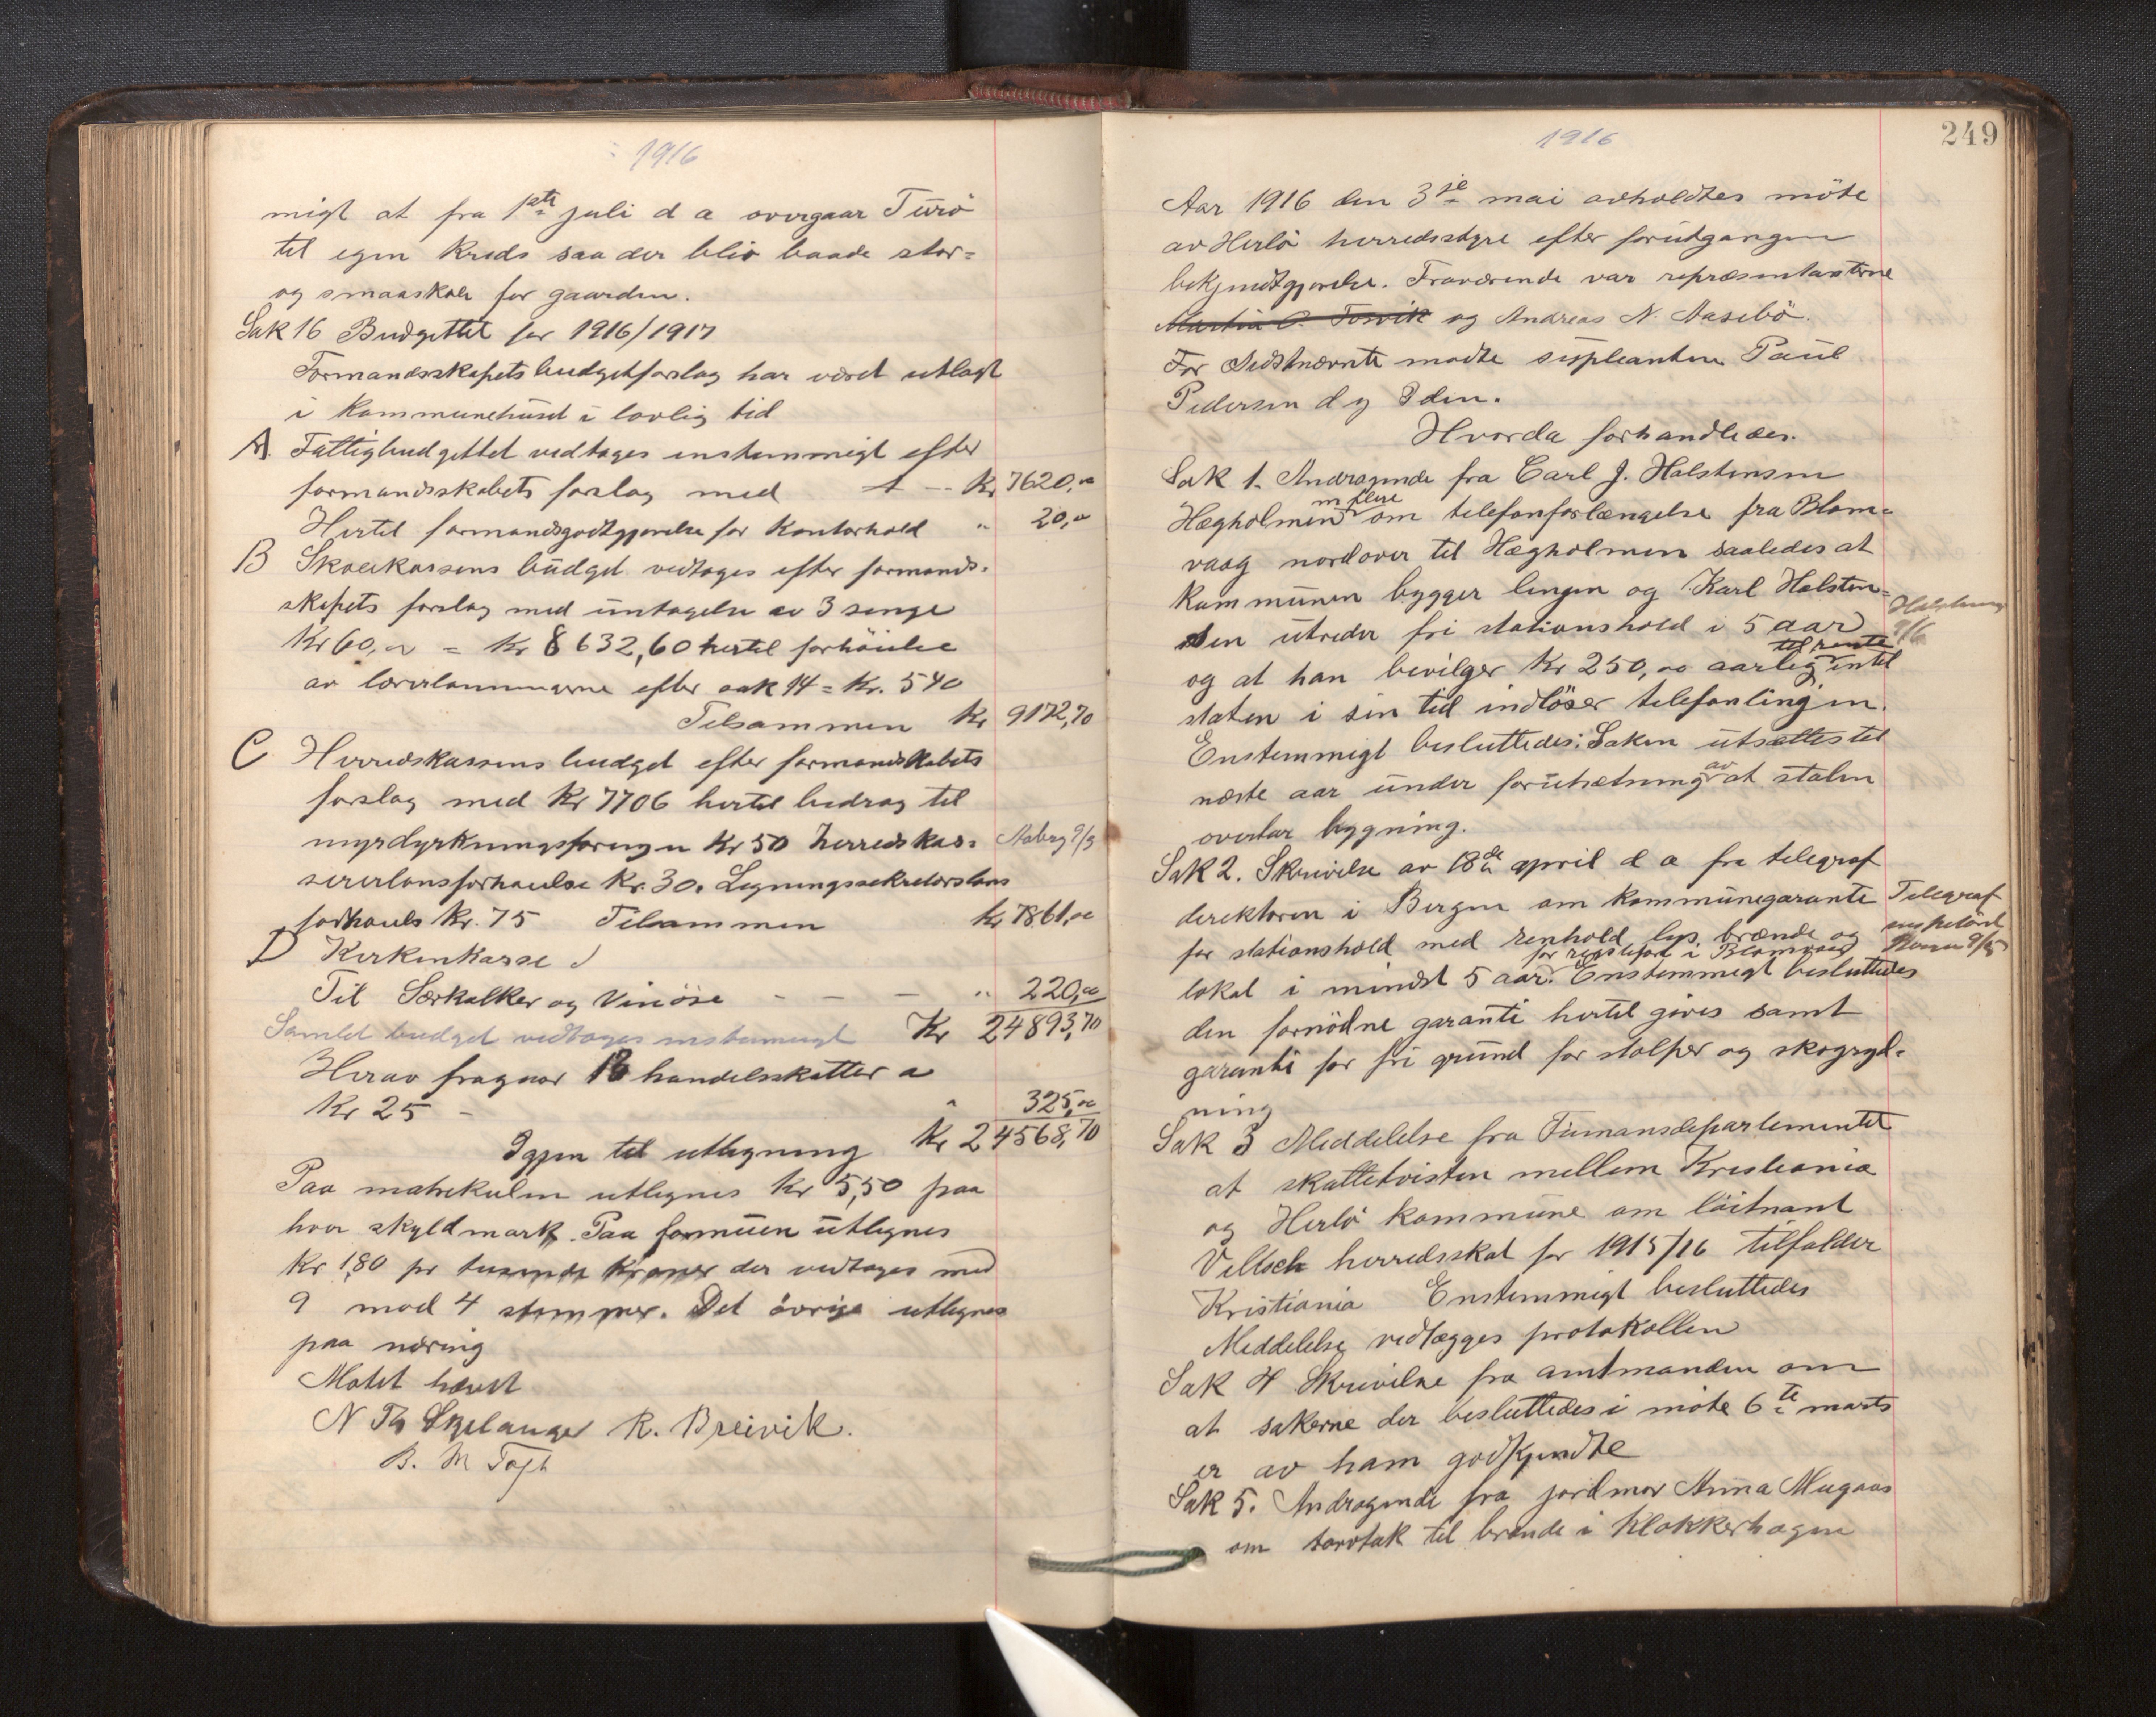 1916
migt at fra 1ste juli d a overgaar Turö
til egen Kreds saa der bliv baade stor=
og smaaskole for gaarden.
Sak 16 Budgettet for 1916/1917
Formandsskapets budgetforslag har været utlagt
i Kommunehuset i lovlig tid
A. Fattigbudgettet vedtages enstemmigt efter
formandsskabets forslag med Kr 7620,00
Hertil formandsgodtgjørelse for Kontorhold " 20,00
B Skolekassens budget vedtages efter formands=
skapets forslag med untagelse av 3 senge
Kr 60,00 = Kr 8632,60 hertil forhöielse
av lærerlønnerne efter sak 14 = Kr. 540
Tilsammen Kr 9172,70
C Herredskassens budget efter formandskabets
forslag med Kr 7706 hertil bidrag til
myrdyrkningsforeningen Kr 50 herredskas=
sererlønsforhøielse Kr. 30. Ligningssekretærsløns
forhøiels Kr. 75 Tilsammen Kr 7861,00
Aaberg 9/5
D Kirkenkasse
Til Særkalker og Vinöse - - - " 220,00
Samlet budget vedtages enstemmigt Kr 24893,70
Herav fragaar 13 handelsskatter a
Kr 25 - " 325,00
Igjen til utligning Kr 24568,70
Paa matrikulen utlignes Kr 5,50 paa
hver skyldmark. Paa formuen utlignes
Kr 1,80 pr tusinde Kroner der vedtages med
9 mod 4 stemmer. Det övrige utlignes
paa næring
Møtet hævet
N Th Skjelanger R. Breivik.
B. M Toft
1916
249
Aar 1916 den 3je mai avholdtes möte
av Herlö herredsstyre efter forutgangen
bekjendtgjørelse. Fraværende var repræsentanterne
Martin O. Tosvik og Andreas N. Aasebö.
For Sidstnævnte mødte supleanten Paul
Pedersen d y Öden.
Hvorda forhandledes.
Sak 1. Andragende fra Carl J. Halstensen
Hægholmen m flere om telefonforlængelse fra Blom=
vaag nordover til Hægholmen saaledes at
Kommunen bygger lingen og Karl Halsten=
sen utreder fri stationshold i 5 aar
og at han bevilger Kr 250,00 aarlig til rente intil
staten i sin tid indlöser telefonlingjen.
Halstensen
9/6
Enstemmigt besluttedes: Saken utsættes til
næste aar under forutsætning av at staten
overtar bygning.
Sak 2. Skrivelse av 18de april d a fra telegraf
direktören i Bergen om kommunegaranti
for stationshold med renhold lys brænde og
for rigstelefon i Blomvaag
lokal i mindst 5 aar. Enstemmigt besluttedes
den fornödne garanti hertil gives samt
garanti for fri grund for stolper og skogryd=
ning
Telegraf
inspektörd
Bergen 9/5
Sak 3 Meddelelse fra Finansdepartementet
at skattetvisten mellem Kristiania
og Herlö kommune om löitnant
Veltsch herredsskat for 1915/16 tilfalder
Kristiania Enstemmigt besluttedes
Meddelelse vedlægges protokollen
Sak 4 Skrivelse fra amtmanden om
at sakerne der besluttedes i möte 6te marts
er av ham godkjendte
Sak 5. Andragende fra jordmor Anna Mugaas
om torvtak til brænde i Klokkerhagen